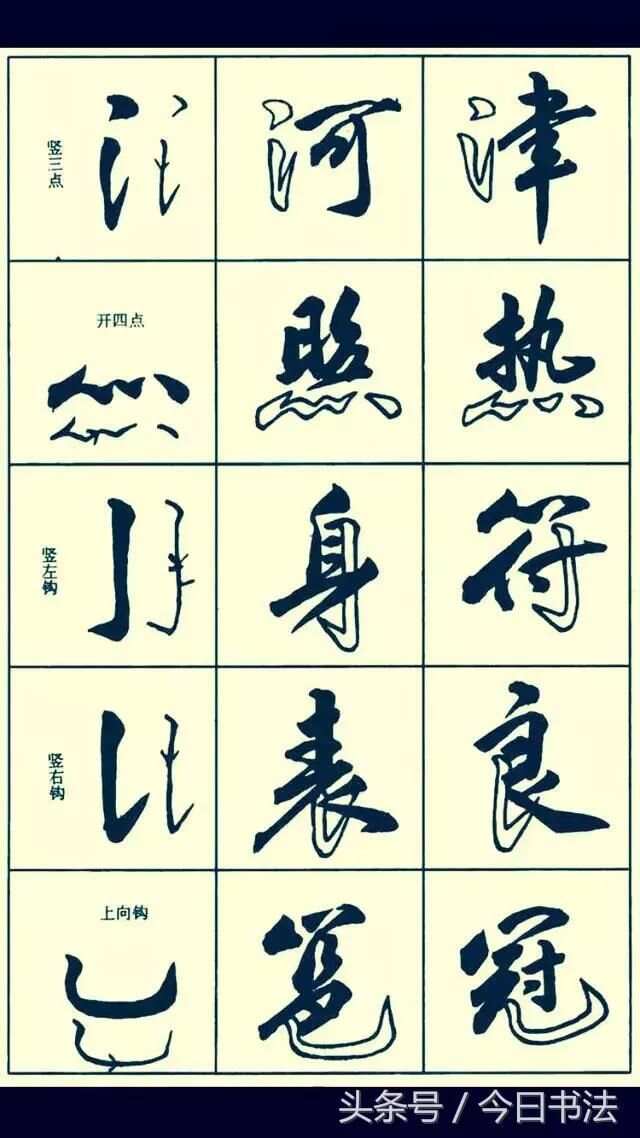 竖三点
河
津
开四点
照
热
竖左钩
身
符
竖右钩
表
良
上向钩
冠
头条号 / 今日书法